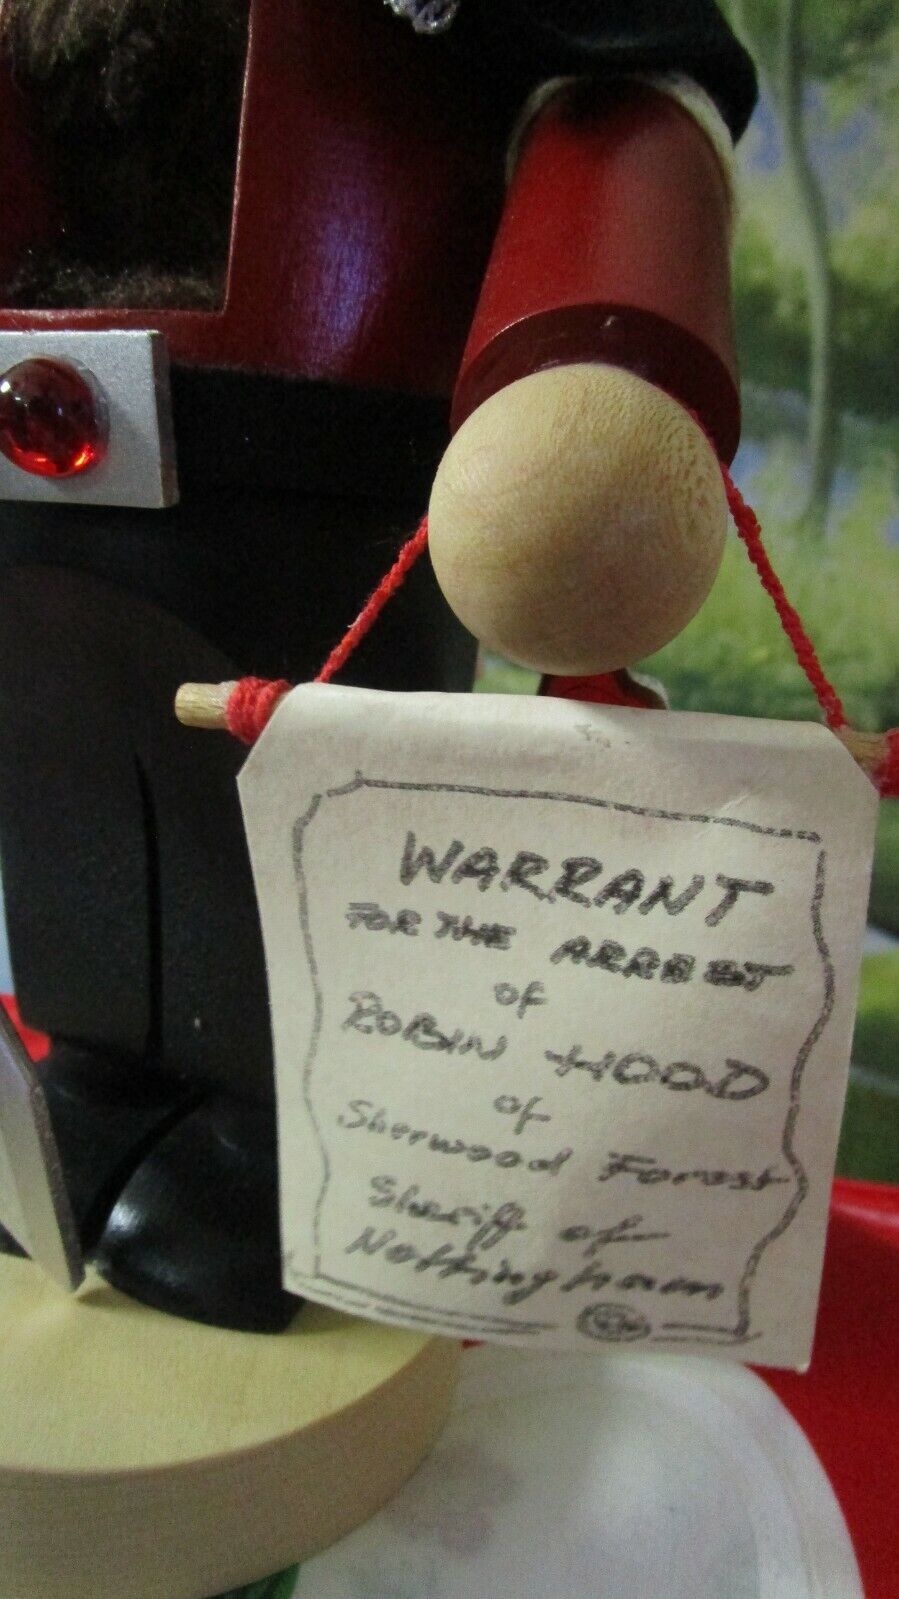 WARRANT
FOR THE ARREST
of
ROBIN HOOD
of
Sherwood Forest
Sheriff of
Nottingham